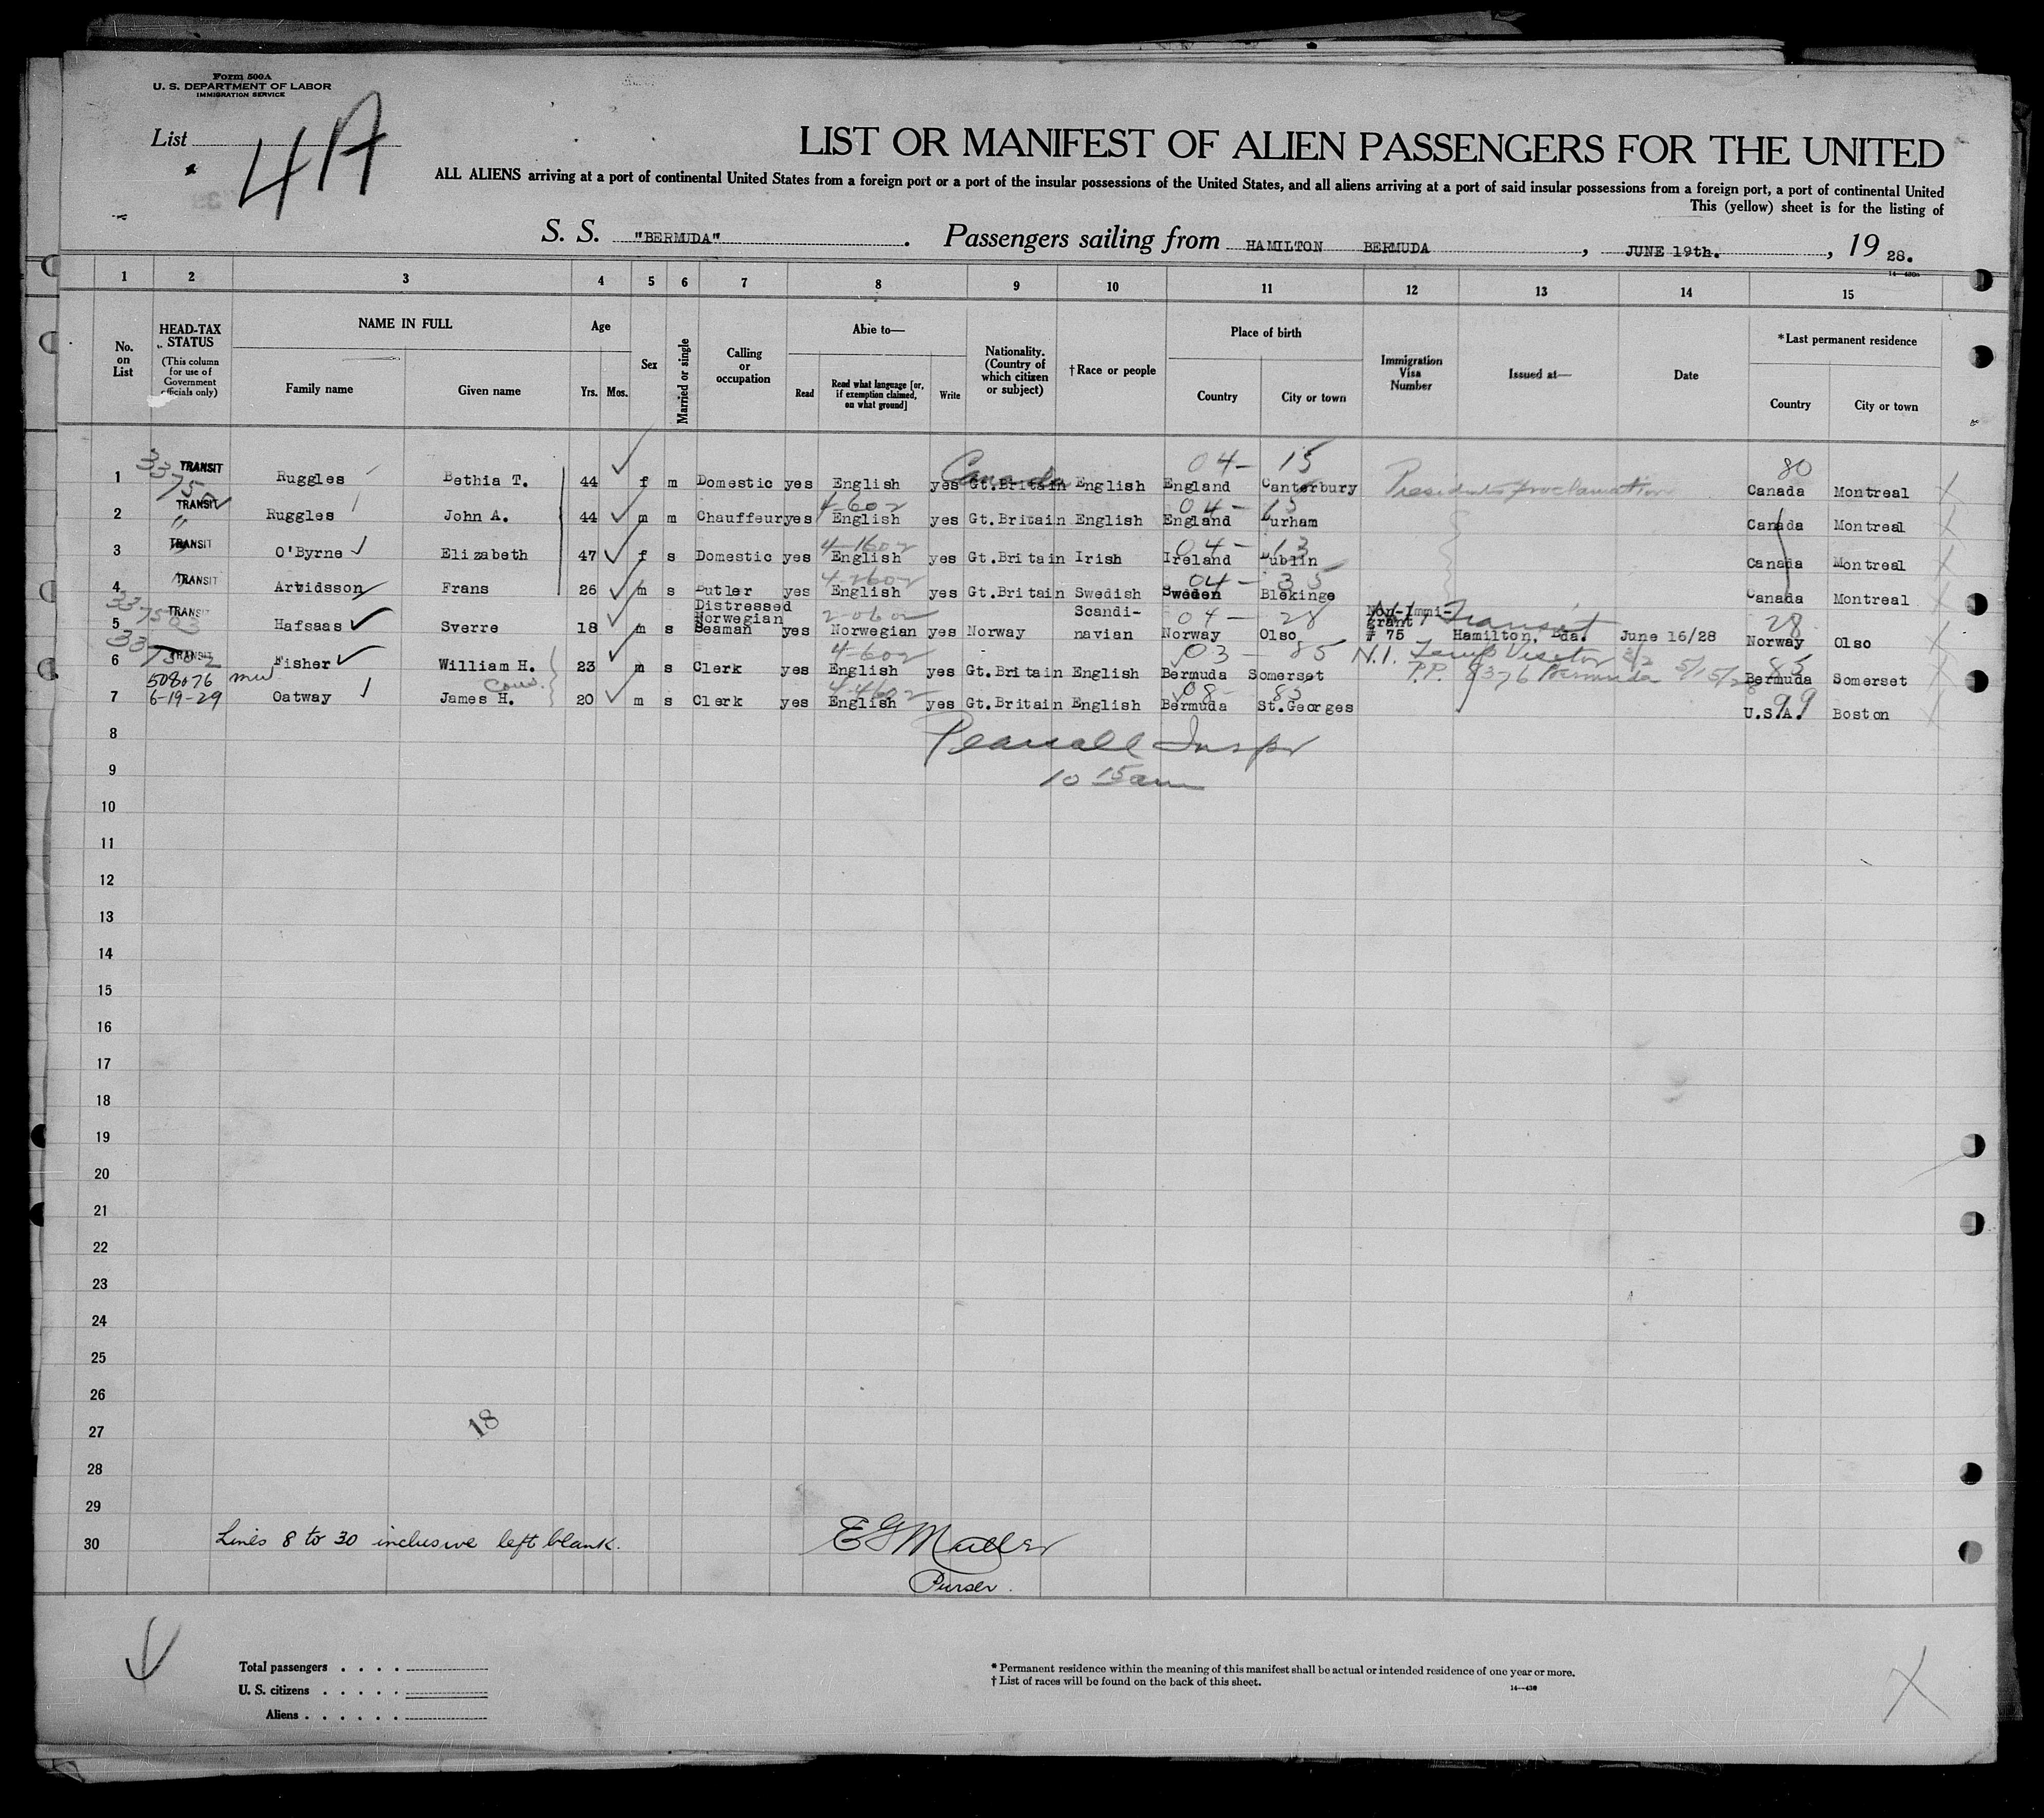 Form 500A
U. S. DEPARTMENT OF LABOR
IMMIGRATION SERVICE
List 4A
LIST OR MANIFEST OF ALIEN PASSENGERS FOR THE UNITED
ALL ALIENS arriving at a port of continental United States from a foreign port or a port of the insular possessions of the United States, and all aliens arriving at a port of said insular possessions from a foreign port, a port of continental United
This (yellow) sheet is for the listing of
S. S. "BERMUDA". Passengers sailing from HAMILTON BERMUDA, JUNE 19th., 19 28.
14—430a
1 2 3 4 5 6 7 8 9 10 11 12 13 14 15
No. on List
HEAD-TAX STATUS
(This column for use of Government officials only)
NAME IN FULL
Family name Given name
Age
Yrs. Mos.
Sex
Married or single
Calling or occupation
Able to—
Read Read what language [or, if exemption claimed, on what ground] Write
Nationality. (Country of which citizen or subject)
†Race or people
Place of birth
Country City or town
Immigration Visa Number
Issued at—
Date
*Last permanent residence
Country City or town
04- 15 80
1 TRANSIT Ruggles Bethia T. 44 f m Domestic yes English yes Canada Gt.Britain English England Canterbury Presidents proclamation Canada Montreal
4-602 04- 15
2 TRANSIT Ruggles John A. 44 m m Chauffeur yes English yes Gt.Britain English England Durham Canada Montreal
04- 13
3 TRANSIT O'Byrne Elizabeth 47 f s Domestic yes English yes Gt.Britain Irish Ireland Dublin Canada Montreal
04- 35
4 TRANSIT Arvidsson Frans 26 m s Butler yes English yes Gt.Britain Swedish Sweden Blekinge Canada Montreal
04- 28 28
5 TRANSIT Hafsaas Sverre 18 m s Distressed Norwegian Seaman yes Norwegian yes Norway Scandi-navian Norway Olso Non-Immi-grant # 75 Transit Hamilton, Bda. June 16/28 Norway Olso
4-602 03- 85 N.I. Temp Visitor 85
6 TRANSIT Fisher William H. 23 m s Clerk yes English yes Gt.Britain English Bermuda Somerset P.P. 8376 Bermuda Bermuda Somerset
508076
6-19-29
08- 83 99
7 Oatway James H. 20 m s Clerk yes English yes Gt.Britain English Bermuda St.Georges U.S.A. Boston
8
Inspr
9
10 15 am
10
11
12
13
14
15
16
17
18
19
20
21
22
23
24
25
26
27
18
28
29
30 Lines 8 to 30 inclusive left blank.
Purser.
Total passengers . . . .
U. S. citizens . . . . .
Aliens . . . . . .
* Permanent residence within the meaning of this manifest shall be actual or intended residence of one year or more.
† List of races will be found on the back of this sheet.
14—430